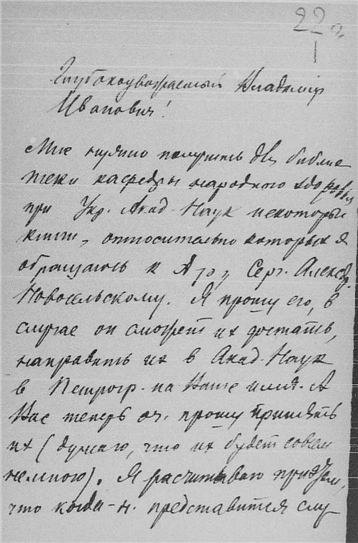 22
1
Глубокоуважаемый Владимір
Иванович!
Мне нужно получить для библио
теки кафедры народного здоровья
при Укр. Акад. Наук некоторые
книги, относительно которых я
обращаюсь к Серг. Александ.
Новосельскому. Я прошу его, в
случае он сможет их достать,
направить их в Акад. Наук
в Петрогр. на Ваше имя. А
Вас теперь оч. прошу принять
их (думаю, что их будет совсем
немного). Я расчитываю при этом,
что когда-н. представится слу